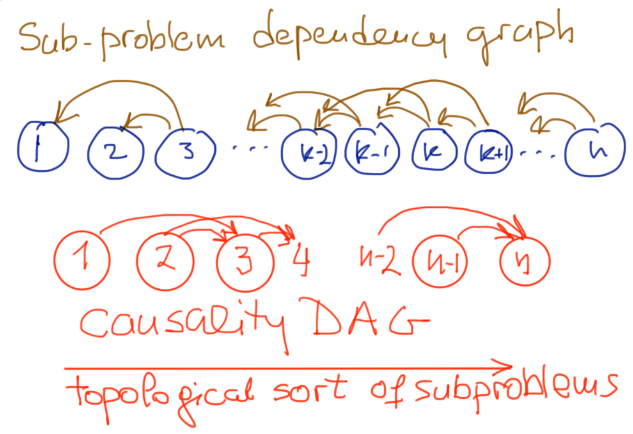 Sub-problem dependency graph
1 2 3 ... k-2 k-1 k k+1 ... n
1 2 3 4 n-2 n-1 n
causality DAG
topological sort of subproblems